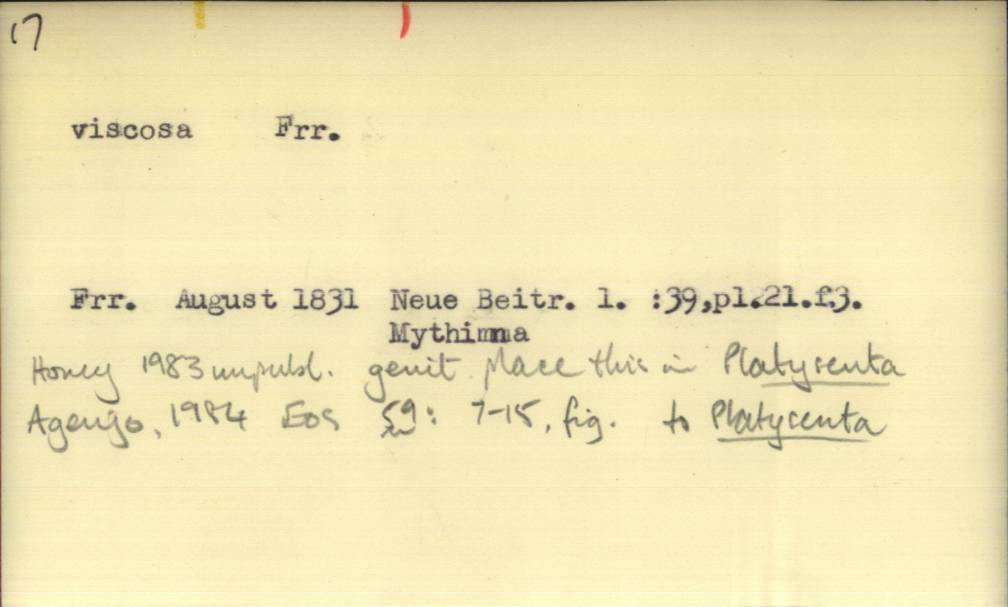 17
viscosa Frr.
Frr. August 1831 Neue Beitr. 1. :39,pl.21.f.3.
Mythimna
Honey 1983 unpubl. genit. place this in Platysenta
Agenjo, 1984 Eos 59: 7-15, fig. to Platysenta